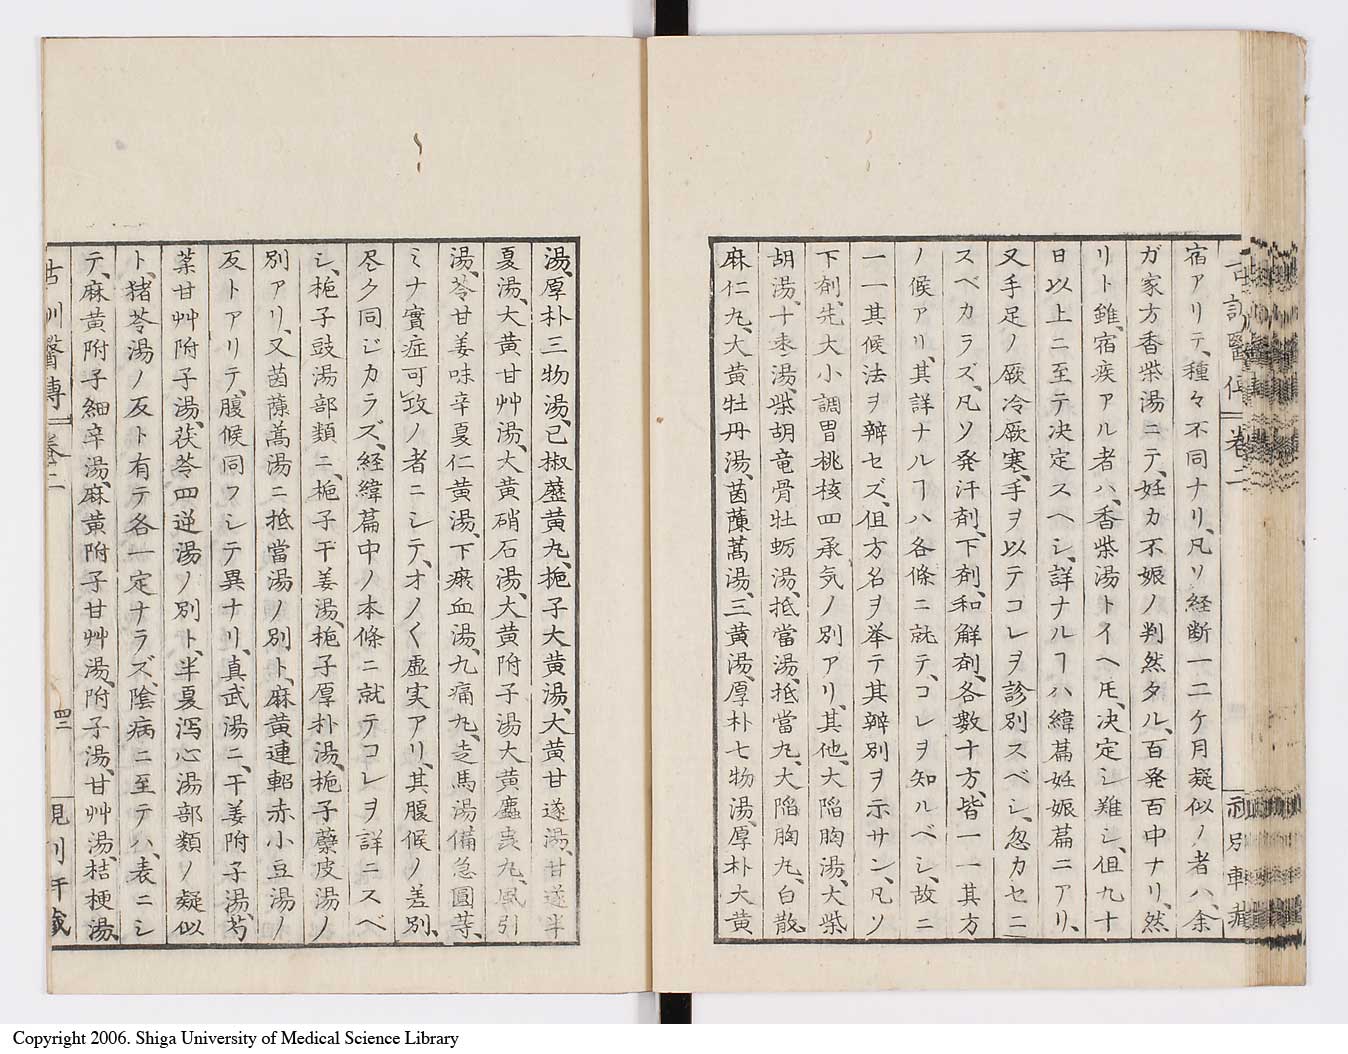 宿アリテ、種々不同ナリ、凡ソ経断一二ケ月疑似ノ者ハ、余
ガ家方香柴湯ニテ、妊カ不娠ノ判然タル、百発百中ナリ、然
リト雖、宿疾アル者ハ、香柴湯トイヘ𪜈、决定シ難シ、但九十
日以上ニ至テ决定スヘシ、詳ナルヿハ緯篇妊娠篇ニアリ、
又手足ノ厥冷厥寒、手ヲ以テコレヲ診別スベシ、忽カセニ
スベカラズ、凡ソ発汗剤、下剤、和解剤、各数十方、皆一一其方
ノ候アリ、其詳ナルヿハ各條ニ就テ、コレヲ知ルベシ、故ニ
一一其候法ヲ辨セズ、但方名ヲ举テ其辨別ヲ示サン、凡ソ
下剤、先大小調胃桃核四承気ノ別アリ、其他、大陷胸湯、大柴
胡湯、十枣湯、柴胡竜骨牡蛎湯、抵當湯、抵當丸、大陷胸丸、白散
麻仁丸、大黄牡丹湯、茵蔯蒿湯、三黄湯、厚朴七物湯、厚朴大黄
古訓醫傳 卷二
湯、厚朴三物湯、己椒藶黄丸、梔子大黄湯、大黄甘遂湯、甘遂半
夏湯、大黄甘艸湯、大黄硝石湯、大黄附子湯大黄䗪虫丸、風引
湯、苓甘姜味辛夏仁黄湯、下瘀血湯、九痛丸、走馬湯備急圓等、
ミナ實症可攻ノ者ニシテ、オノ〱虚実アリ、其腹候ノ差別、
尽ク同ジカラズ、経緯篇中ノ本條ニ就テコレヲ詳ニスベ
シ、梔子豉湯部類ニ、梔子干姜湯、梔子厚朴湯、梔子蘗皮湯ノ
別アリ、又茵蔯蒿湯ニ抵當湯ノ別ト、麻黄連軺赤小豆湯ノ
反トアリテ、腹候同フシテ異ナリ、真武湯ニ、干姜附子湯、芍
薬甘艸附子湯、茯苓四逆湯ノ別ト、半夏瀉心湯部類ノ疑似
ト、猪苓湯ノ反ト有テ各一定ナラズ、陰病ニ至テハ、表ニシ
テ、麻黄附子細辛湯、麻黄附子甘艸湯、附子湯、甘艸湯、桔梗湯、
古訓醫傳 卷二 四二
Copyright 2006. Shiga University of Medical Science Library